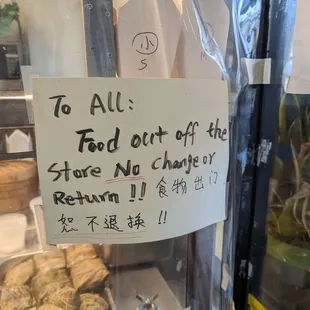 小
S
To All:
Food out off the
Store No Change or
Return !! 食物出门
恕不退换 !!